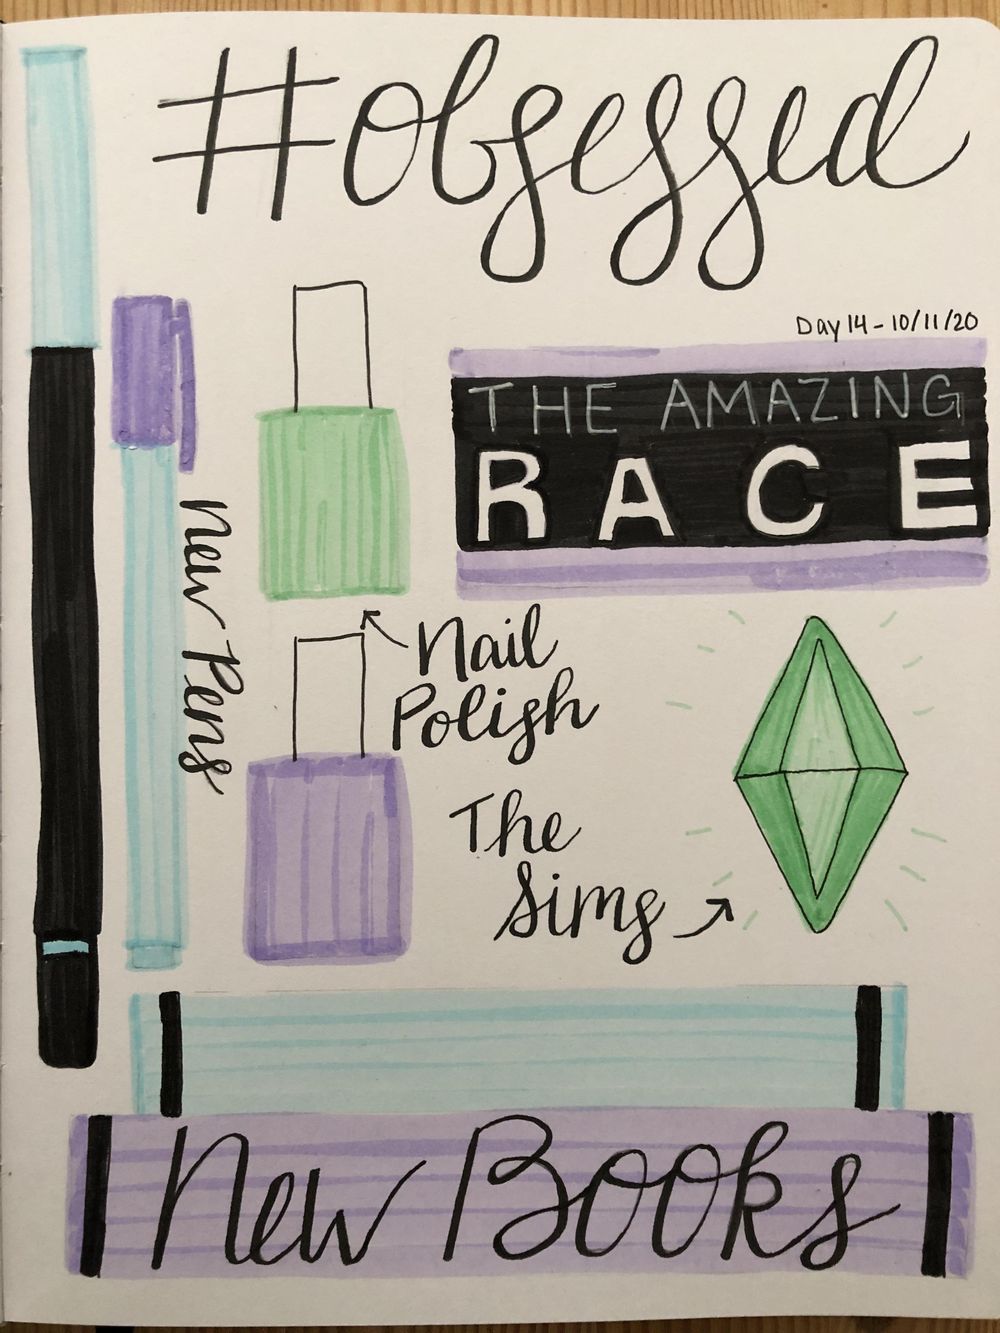 #obsessed
Day 14 - 10/11/20
THE AMAZING
RACE
New Pens
Nail
Polish
The
Sims
New Books